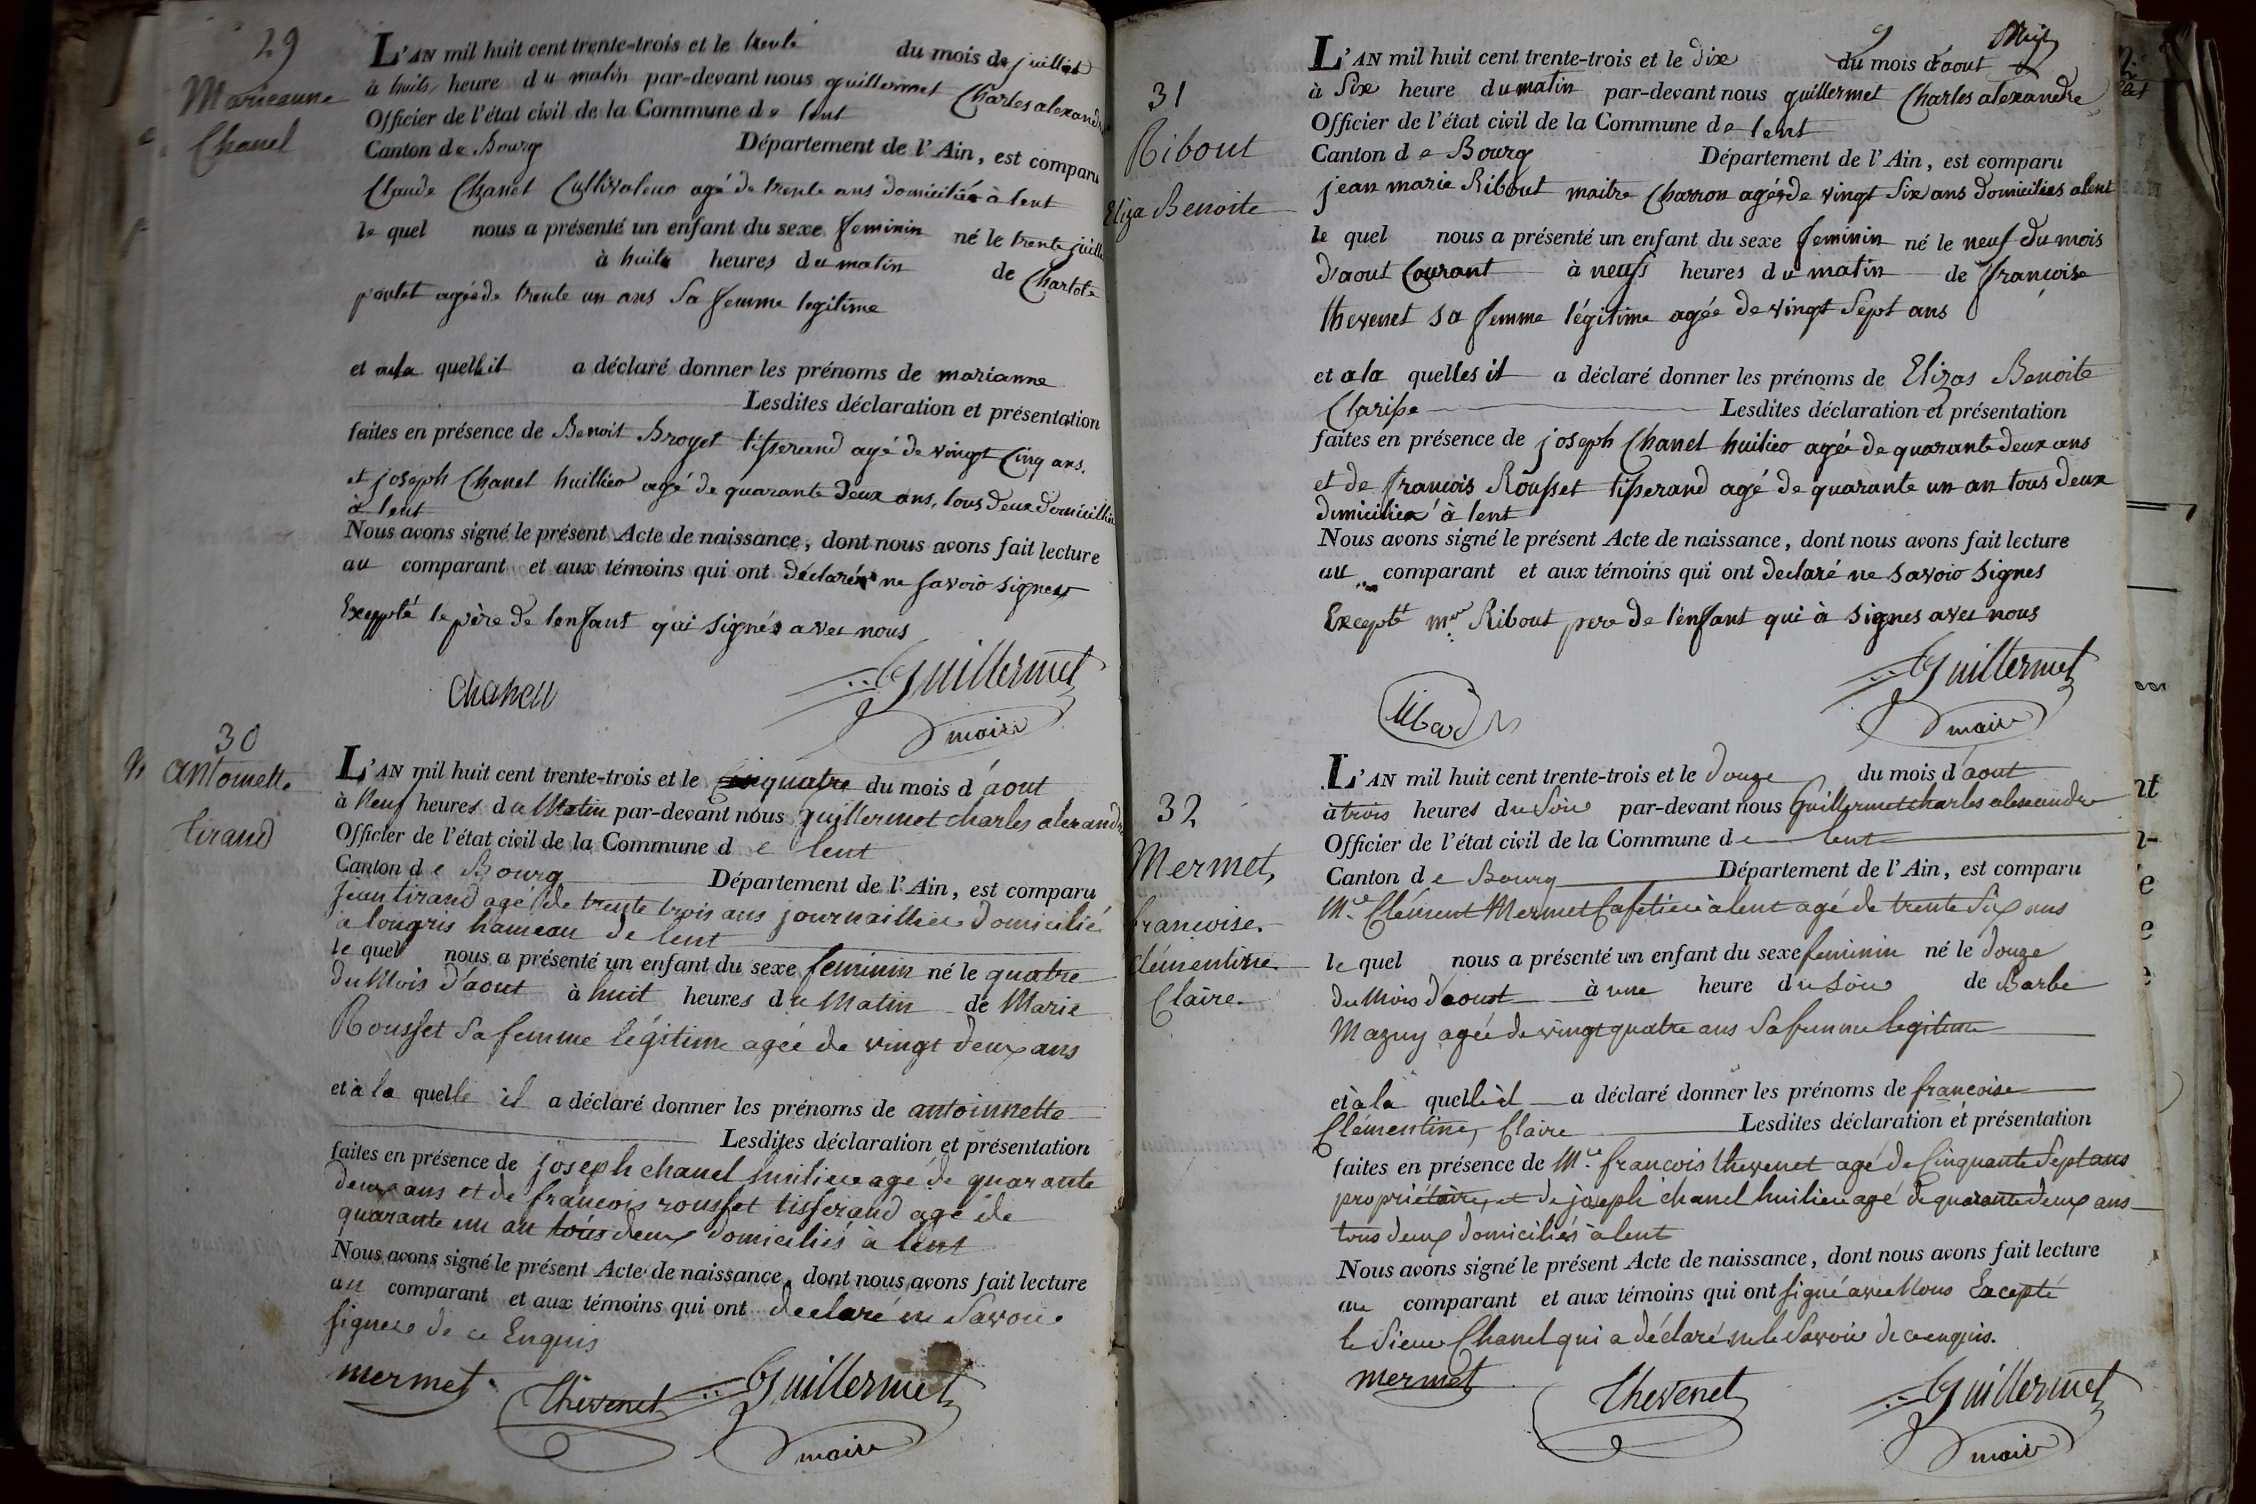 29
Marieanne
Chanel
L'AN mil huit cent trente-trois et le trente du mois de juillet
à huits heure du matin par-devant nous guillermet Charles alexandre
Officier de l'état civil de la Commune de lent
Canton de Bourg Département de l'Ain, est comparu
Claude Chanel Cultivateur agé de trente ans domicilié à lent
le quel nous a présenté un enfant du sexe feminin né le trente juillet
à huits heures du matin de Charlote
poulet agée de trente un ans Sa femme legitime
et a la quell il a déclaré donner les prénoms de marianne
Lesdites déclaration et présentation
faites en présence de Benoit Broyet tisserand agé de vingt Cinq ans.
et joseph Chanel huillier agé de quarante deux ans, tous deux domicillies
à lent
Nous avons signé le présent Acte de naissance, dont nous avons fait lecture
au comparant et aux témoins qui ont déclaré ne savoir signer
Excepté le père de lenfant qui signés avec nous
Chanell Guillermet
maire
30
antoinette
tirand
L'AN mil huit cent trente-trois et le quatre du mois d'aout
à Neuf heures du Matin par-devant nous guillermet charles alexandre
Officier de l'état civil de la Commune de lent
Canton de Bourg Département de l'Ain, est comparu
jean tirand agé de trente trois ans journaillier domicilié
a longris hameau de lent
le quel nous a présenté un enfant du sexe feminin né le quatre
du Mois d'aout à huit heures du Matin de Marie
Rousset Sa femme légitime agée de vingt deux ans
et à la quelle il a déclaré donner les prénoms de antoinnette
Lesdites déclaration et présentation
faites en présence de joseph chanel huilieu agé de quarante
deux ans et de francois rousset tisserand agé de
quarante un an tous deux domiciliés à lent
Nous avons signé le présent Acte de naissance, dont nous avons fait lecture
au comparant et aux témoins qui ont declaré ne Savoir
signer de ce Enquis
mermet Thevenet Guillermet
maire
31
Ribout
Eliza Benoite
L'AN mil huit cent trente-trois et le dix du mois d'aout
à Six heure du matin par-devant nous guillermet Charles alexandre
Officier de l'état civil de la Commune de lent
Canton de Bourg Département de l'Ain, est comparu
jean marie Ribout maitre Charron agés de vingt Six ans domiciliés a lent
le quel nous a présenté un enfant du sexe feminin né le neuf du mois
d'aout Courant à neufs heures du matin de françoise
thevenet sa femme légitime agée de vingt Sept ans
et a la quelles il a déclaré donner les prénoms de Elizas Benoite
Clarisse Lesdites déclaration et présentation
faites en présence de joseph Chanel huilier agée de quarante deux ans
et de francois Rousset tisserand agé de quarante un an tous deux
dimicilier à lent
Nous avons signé le présent Acte de naissance, dont nous avons fait lecture
au comparant et aux témoins qui ont declaré ne savoir signes
Except mr Ribout pere de lenfant qui à signes avec nous
Guillermet
maire
32
Mermet,
francoise.
clémentine.
Claire.
L'AN mil huit cent trente-trois et le douze du mois d'aout
à trois heures du Soir par-devant nous Guillermet Charles alexandre
Officier de l'état civil de la Commune de lent
Canton de Bourg Département de l'Ain, est comparu
Mr. Clément Mermet Cafetier à lent agé de trente Six ans
le quel nous a présenté un enfant du sexe feminin né le douze
du Mois d'aoust à une heure du Soir de Barbe
Mazuy agée de vingt quatre ans Sa femme legitime
et à la quelle il a déclaré donner les prénoms de françoise
Clémentine, Claire Lesdites déclaration et présentation
faites en présence de Mr. francois thevenet agé de Cinquante Sept ans
propriétaire, et de joseph chanel huilieu agé de quarante deux ans
tous deux domiciliés à lent
Nous avons signé le présent Acte de naissance, dont nous avons fait lecture
au comparant et aux témoins qui ont signé avec Nous Excepté
le Sieur Chanel qui a déclaré ne le Savoir de ce enquis.
mermet Thevenet Guillermet
maire